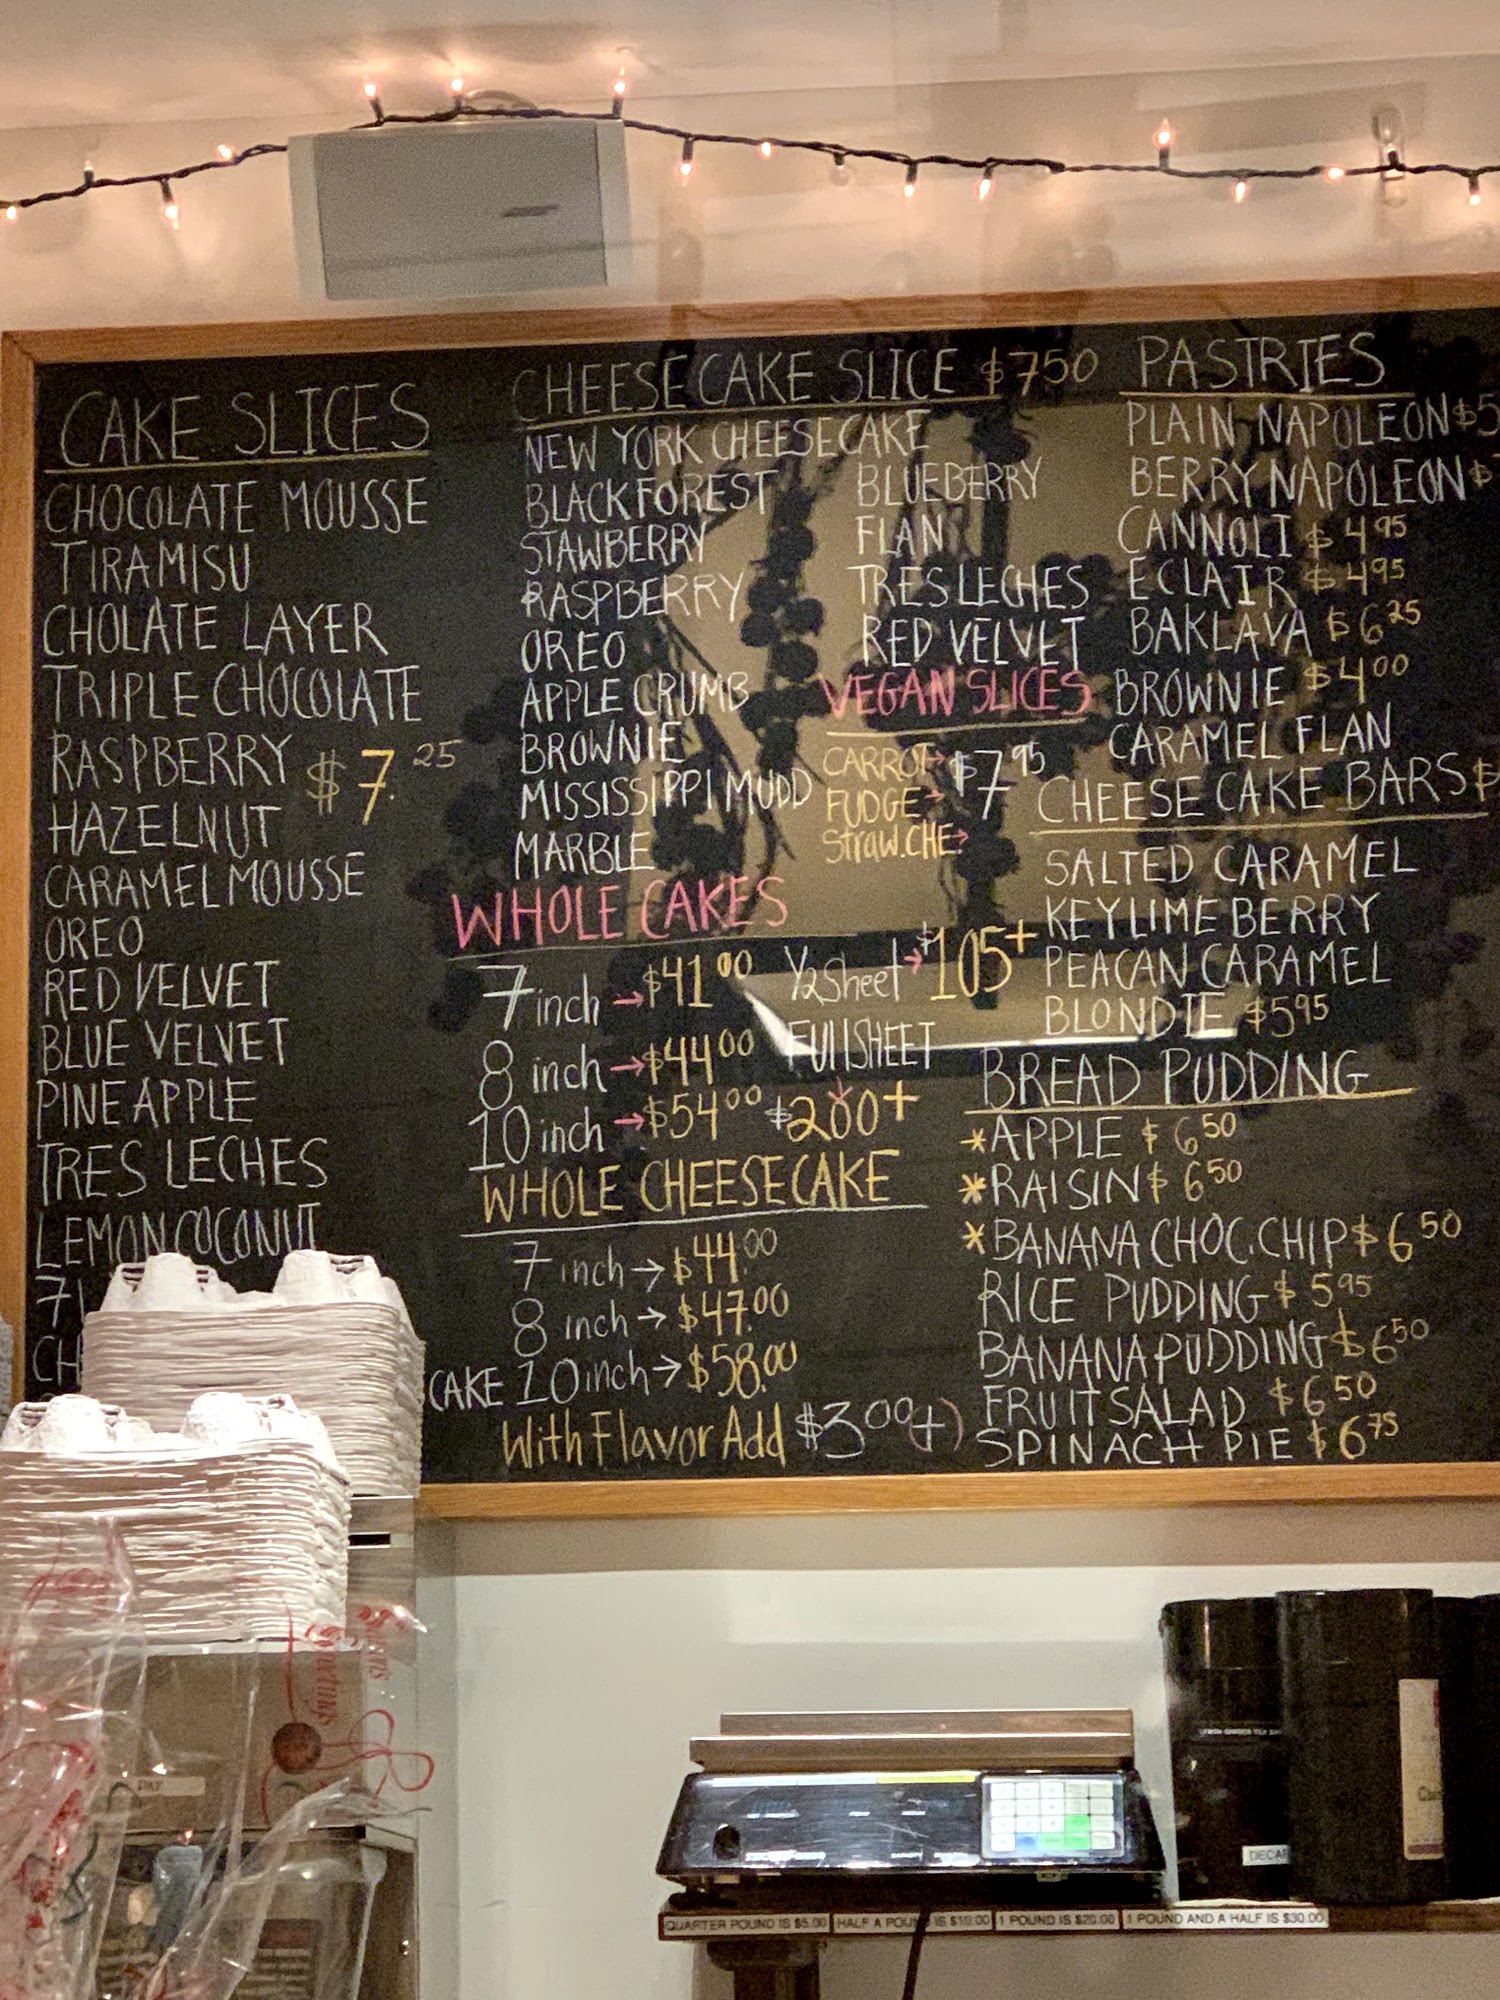 CAKE SLICES
CHOCOLATE MOUSSE
TIRAMISU
CHOLATE LAYER
TRIPLE CHOCOLATE
RASPBERRY $7.25
HAZELNUT
CARAMEL MOUSSE
OREO
RED VELVET
BLUE VELVET
PINEAPPLE
TRES LECHES
LEMON COCONUT
CHEESECAKE SLICE $750
NEW YORK CHEESECAKE
BLACKFOREST
STAWBERRY
RASPBERRY
OREO
APPLE CRUMB
BROWNIE
MISSISSIPPI MUDD
MARBLE
BLUEBERRY
FLAN
TRES LECHES
RED VELVET
VEGAN SLICES
CARROT→ $7.95
FUDGE→
Straw.CHE→
WHOLE CAKES
7 inch → $41.00
8 inch → $44.00
10 inch → $54.00
1/2 Sheet → $105+
FUllSHEET
$200+
WHOLE CHEESECAKE
7 inch → $44.00
8 inch → $47.00
CAKE 10 inch → $58.00
With Flavor Add $3.00(+)
PASTRIES
PLAIN NAPOLEON $5
BERRY NAPOLEON $
CANNOLI $4.95
ECLAIR $4.95
BAKLAVA $6.25
BROWNIE $4.00
CARAMEL FLAN
CHEESE CAKE BARS $
SALTED CARAMEL
KEYLIME BERRY
PEACAN CARAMEL
BLONDIE $5.95
BREAD PUDDING
*APPLE $6.50
*RAISIN $6.50
*BANANA CHOC.CHIP $6.50
RICE PUDDING $5.95
BANANA PUDDING $6.50
FRUIT SALAD $6.50
SPINACH PIE $6.75
DECAF
QUARTER POUND IS $5.00
HALF A POUND IS $10.00
1 POUND IS $20.00
1 POUND AND A HALF IS $30.00